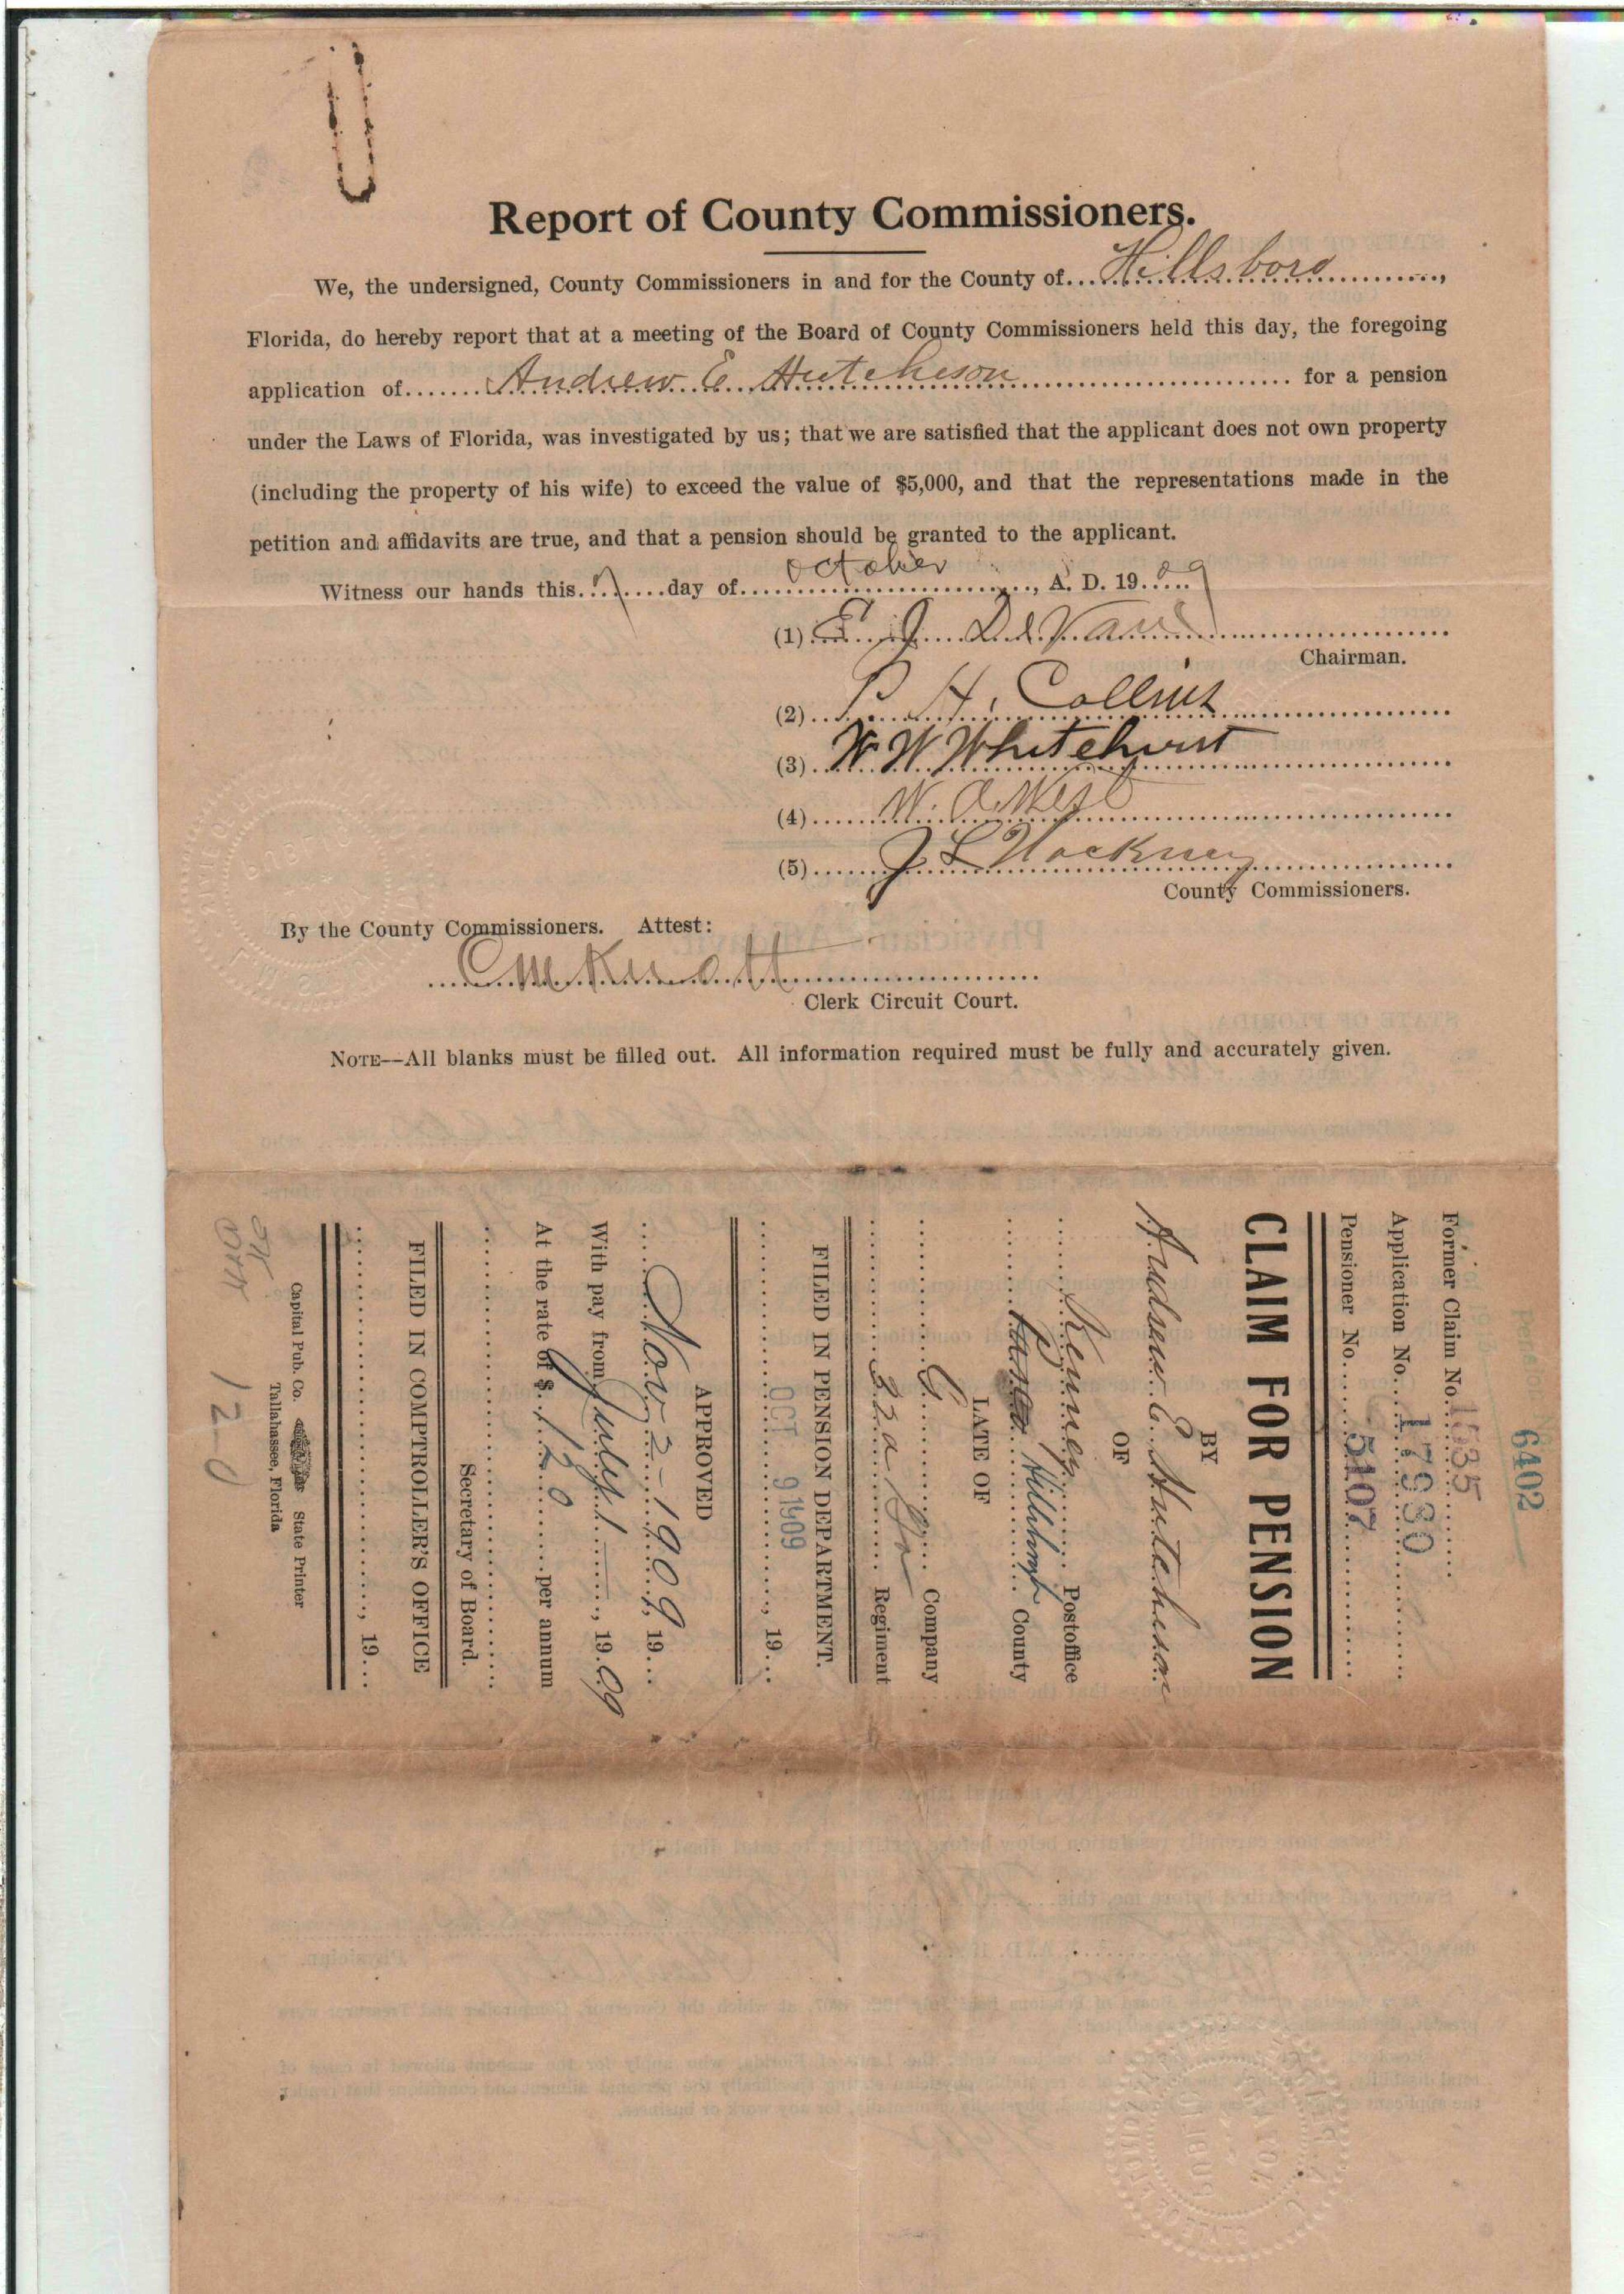 Report of County Commissioners.
We, the undersigned, County Commissioners in and for the County of Hillsboro,
Florida, do hereby report that at a meeting of the Board of County Commissioners held this day, the foregoing
application of Andrew E. Hutcheson for a pension
under the Laws of Florida, was investigated by us; that we are satisfied that the applicant does not own property
(including the property of his wife) to exceed the value of $5,000, and that the representations made in the
petition and affidavits are true, and that a pension should be granted to the applicant.
Witness our hands this 7 day of October, A. D. 1909
(1)
Chairman.
(2) P H. Collins
(3) W. W. Whitehurst
(4) W. A. West
(5) J L Hackney
County Commissioners.
By the County Commissioners. Attest:
Clerk Circuit Court.
NOTE—All blanks must be filled out. All information required must be fully and accurately given.
6402
Former Claim No. 1635
Application No.
Pensioner No. 5107
CLAIM FOR PENSION
BY
Andrew E. Hutcheson
OF
Postoffice
Hillsboro County
LATE OF
G Company
32 Regiment
FILED IN PENSION DEPARTMENT.
OCT 9 1909, 19
APPROVED
Nov. 2-1909, 19
With pay from July 1, 1909
At the rate of $ 120 per annum
Secretary of Board.
FILED IN COMPTROLLER'S OFFICE
, 19
Capital Pub. Co. State Printer
Tallahassee, Florida
OK
120